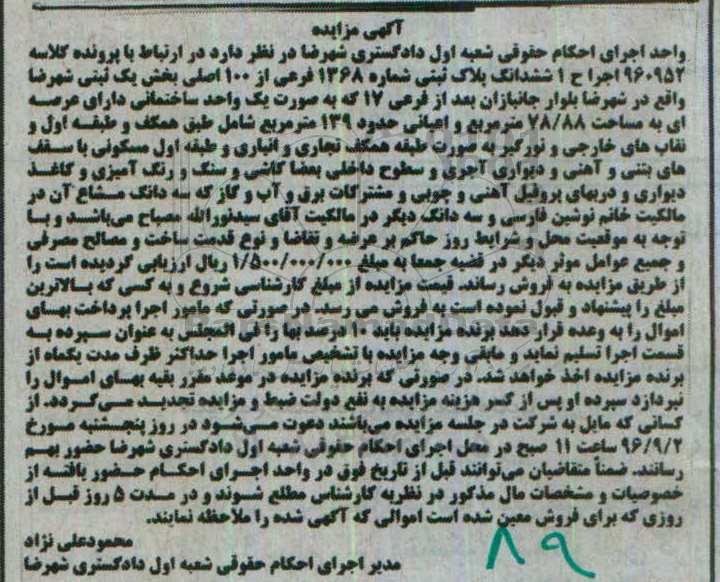 آگهی مزایده
واحد اجرای احکام حقوقی شعبه اول دادگستری شهرضا در نظر دارد در ارتباط با پرونده کلاسه
۹۶۰۹۵۲ اجرا ح ۱ ششدانگ پلاک ثبتی شماره ۱۳۶۸ فرعی از ۱۰۰ اصلی بخش یک ثبتی شهرضا
واقع در شهرضا بلوار جانبازان بعد از فرعی ۱۷ که به صورت یک واحد ساختمانی دارای عرصه
ای به مساحت ۷۸/۸۸ مترمربع و اعیانی حدود ۱۳۹ مترمربع شامل طبق همکف و طبقه اول و
نقاب های خارجی و نورگیر به صورت طبقه همکف تجاری و انباری و طبقه اول مسکونی با سقف
های بتنی و آهنی و دیواری آجری و سطوح داخلی بعضا کاشی و سنگ و رنگ آمیزی و کاغذ
دیواری و دربهای پروفیل آهنی و چوبی و مشترکات برق و آب و گاز که سه دانگ مشاع آن در
مالکیت خانم نوشین فارسی و سه دانگ دیگر در مالکیت آقای سیدنورالله مصباح می‌باشند و با
توجه به موقعیت محل و شرایط روز حاکم بر عرضه و تقاضا و نوع قدمت ساخت و مصالح مصرفی
و جمیع عوامل موثر دیگر در قضیه جمعا به مبلغ ۱/۵۰۰/۰۰۰/۰۰۰ ریال ارزیابی گردیده است را
از طریق مزایده به فروش رساند. قیمت مزایده از مبلغ کارشناسی شروع و به کسی که بالاترین
مبلغ را پیشنهاد و قبول نموده است به فروش می رسد. در صورتی که مامور اجرا پرداخت بهای
اموال را به وعده قرار دهد برنده مزایده باید ۱۰ درصد بها را فی المجلس به عنوان سپرده به
قسمت اجرا تسلیم نماید و مابقی وجه مزایده با تشخیص مامور اجرا حداکثر ظرف مدت یکماه از
برنده مزایده اخذ خواهد شد. در صورتی که برنده مزایده در موعد مقرر بقیه بهای اموال را
نپردازد سپرده او پس از کسر هزینه مزایده به نفع دولت ضبط و مزایده تجدید می‌گردد. از
کسانی که مایل به شرکت در جلسه مزایده می‌باشند دعوت می‌شود در روز پنجشنبه مورخ
۹۶/۹/۲ ساعت ۱۱ صبح در محل اجرای احکام حقوقی شعبه اول دادگستری شهرضا حضور بهم
رسانند. ضمناً متقاضیان می‌توانند قبل از تاریخ فوق در واحد اجرای احکام حضور یافته از
خصوصیات و مشخصات مال مذکور در نظریه کارشناس مطلع شوند و در مدت ۵ روز قبل از
روزی که برای فروش معین شده است اموالی که آگهی شده را ملاحظه نمایند.
محمودعلی نژاد
مدیر اجرای احکام حقوقی شعبه اول دادگستری شهرضا
۸۹